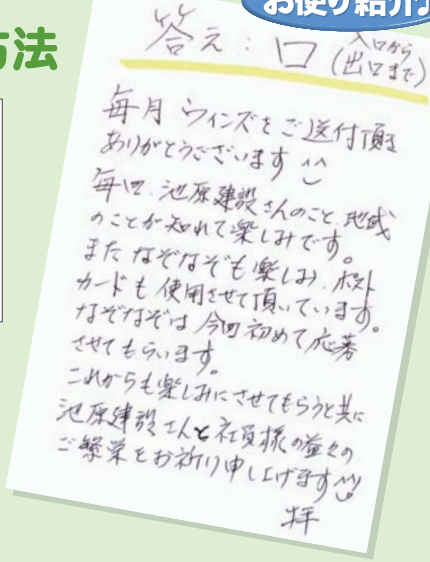 お便り紹介
方法
答え：口（入口から
出口まで）
毎月 ウィンズをご送付頂き
ありがとうございます^^
毎回、池原建設さんのこと、地域
のことが知れて楽しみです。
また なぞなぞも楽しみ、ポスト
カードも使用させて頂いています。
なぞなぞは 今回初めて応募
させてもらいます。
これからも楽しみにさせてもらうと共に
池原建設さんと社員様の益々の
ご繁栄をお祈り申し上げます^^
拝